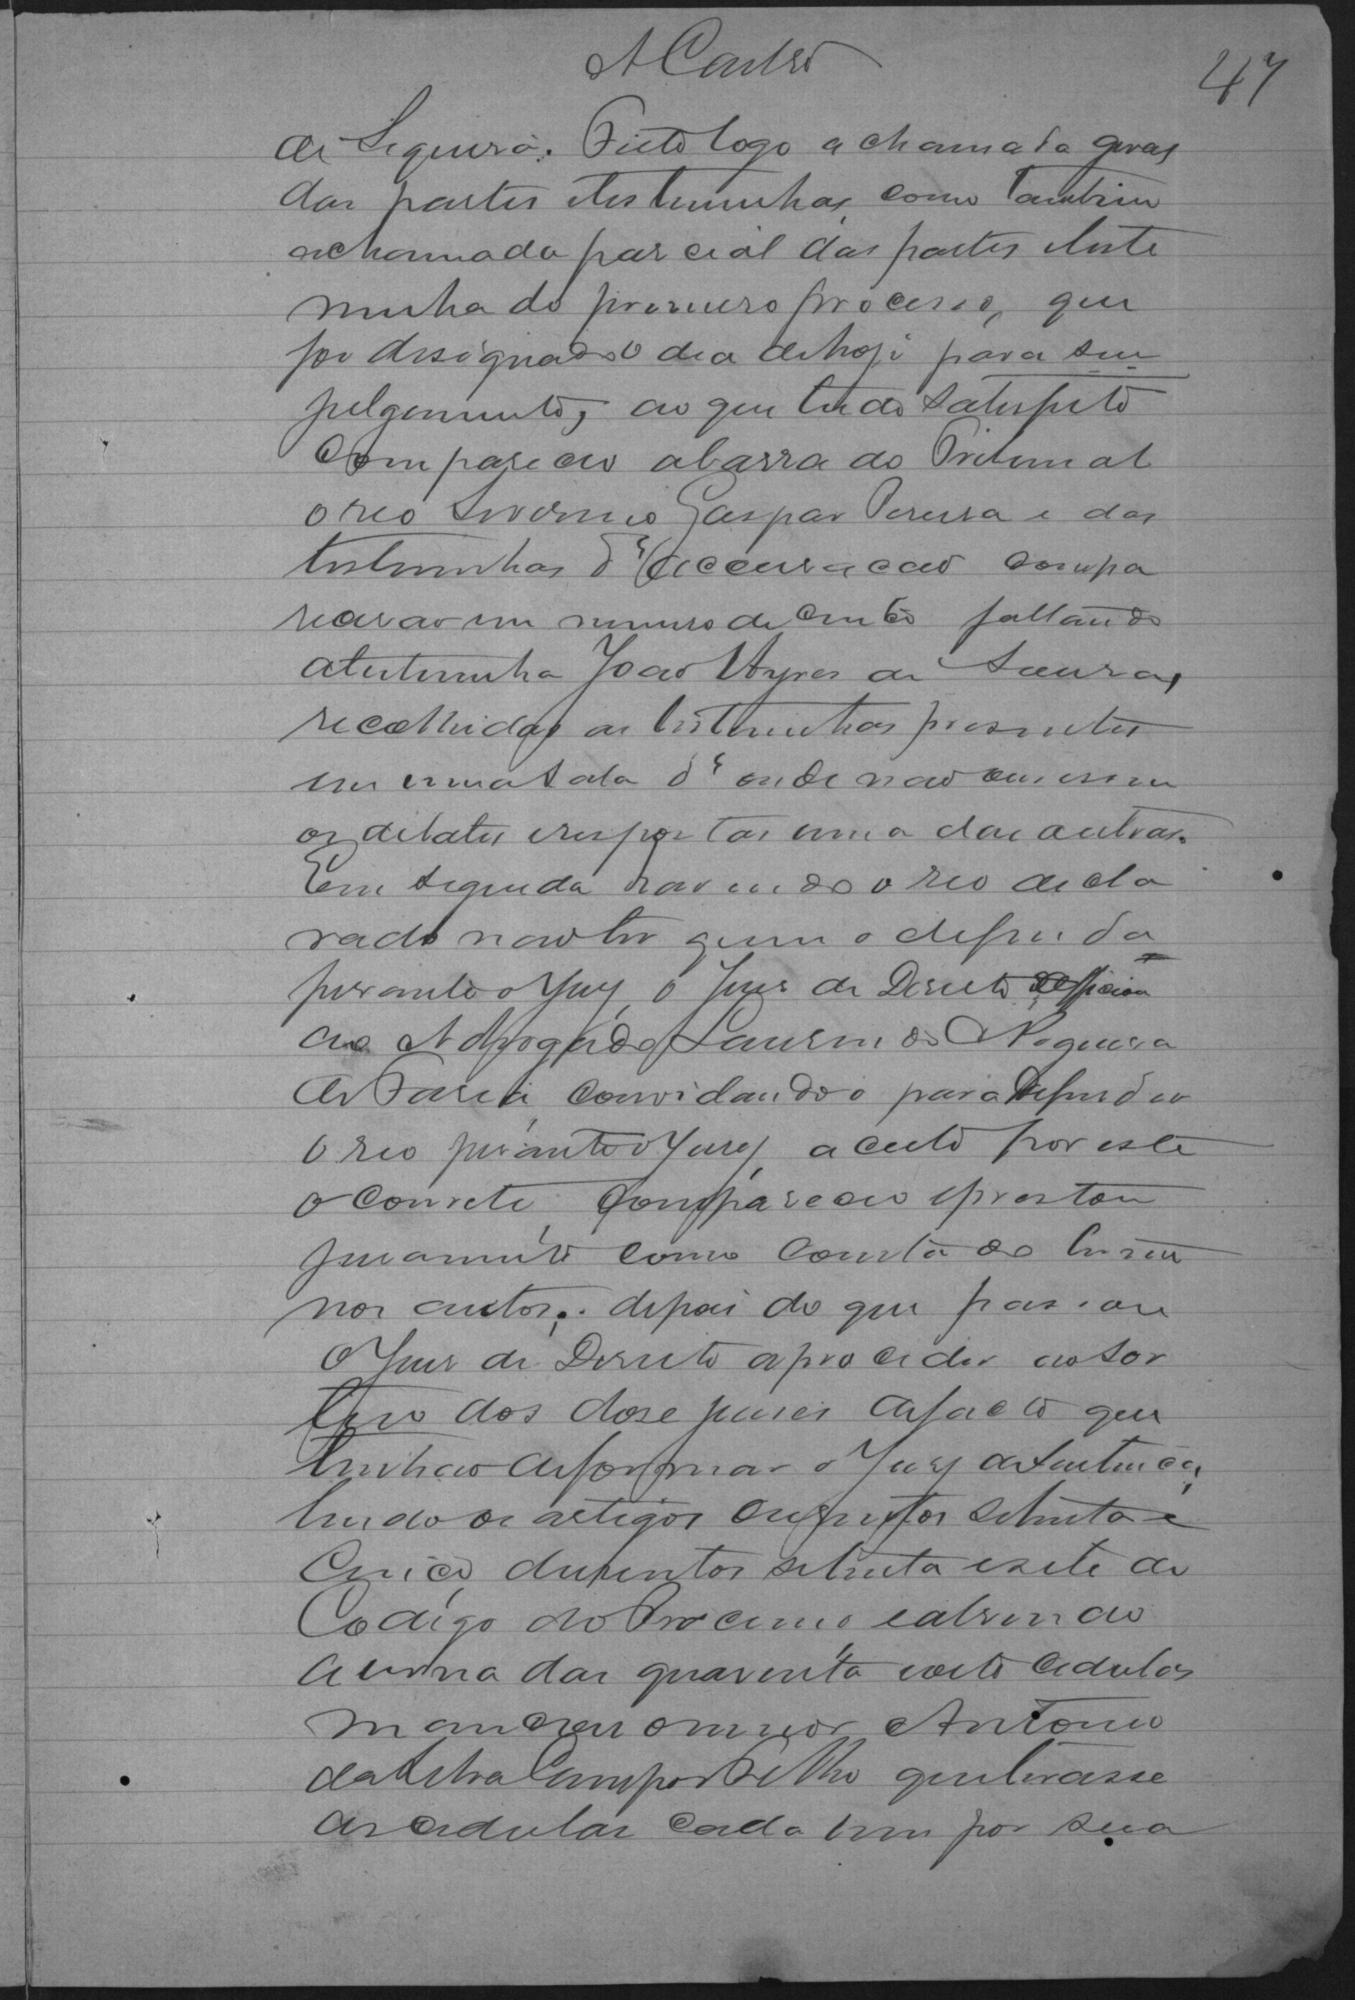 A Castro
47
de Siqueira. Feito logo a chamada geral
das partes testemunhas, como tambem
a chamada parcial das partes e teste
munha do primeiro processo, que
foi designado o dia de hoje para seu
julgamento, ao que tudo satisfeito
Compareceu a barra do Tribunal
o reo Severino Gaspar Pereira e das
testemunhas d'accusacao compa
recerao em numero de cinco faltando
a testemunha Joao Ayres de Sousa,
recolhidas as testemunhas presentes
em uma sala d'onde nao ouvissem
os debates e respostas uma das outras.
Em seguida havendo o reo decla
rado nao ter quem o defenda
perante o Jury, o Juiz de Direito officiou
ao Advogado Laurindo Nogueira
de Faria, convidando o para defender
o reo perante o Jury, aceito por este
o convite, compareceu e prestou
juramento como consta do termo
nos autos; depois do que passou
o Juiz de Direito a proceder ao sor
teio dos dose juises de facto que
tinhao de formar o Jury de sentença,
lendo os artigos dusentos setenta e
cinco, dusentos setenta e sete do
Codigo do Processo e abrindo
a urna das quarenta e oito cedulas
mandou o menor Antonio
da Silva Campos Filho que tirasse
as cedulas cada uma por sua